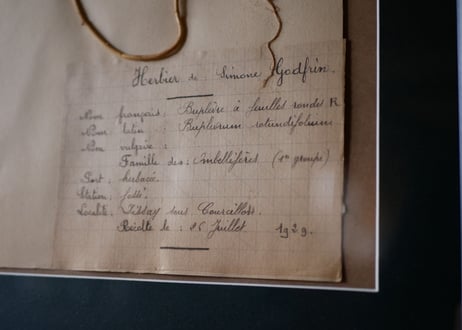 Herbier de Simone Godfrin.
Nom français : Buplèvre à feuilles rondes R
Nom latin : Buplevrum rotundifolium
Nom vulgaire :
Famille des : Ombellifères (1er groupe)
Port : herbacé.
Station : fossé.
Localité : Tissay sous Courcillon.
Récolté le : 25 Juillet 1929.